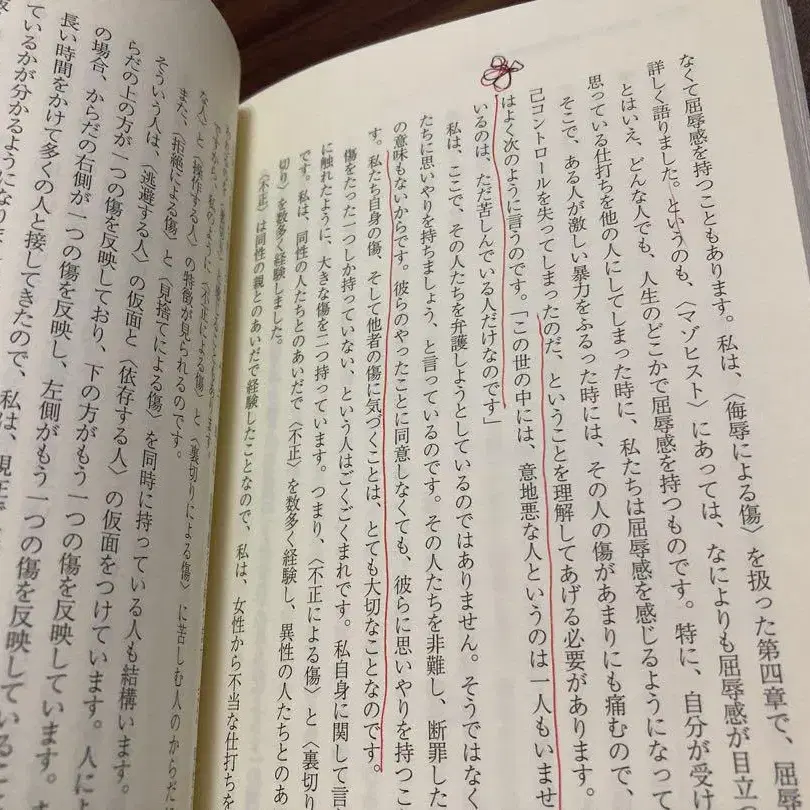 なくて屈辱感を持つこともあります。私は、〈侮辱による傷〉を扱った第四章で、屈辱
詳しく語りました。というのも、〈マゾヒスト〉にあっては、なによりも屈辱感が目立つ
とはいえ、どんな人でも、人生のどこかで屈辱感を持つものです。特に、自分が受け
思っている仕打ちを他の人にしてしまった時に、私たちは屈辱感を感じるようになって
そこで、ある人が激しい暴力をふるった時には、その人の傷があまりにも痛むので、
己コントロールを失ってしまったのだ、ということを理解してあげる必要があります。
はよく次のように言うのです。「この世の中には、意地悪な人というのは一人もいませ
いるのは、ただ苦しんでいる人だけなのです」
私は、ここで、その人たちを弁護しようとしているのではありません。そうではなく
たちに思いやりを持ちましょう、と言っているのです。その人たちを非難し、断罪した
の意味もないからです。彼らのやったことに同意しなくても、彼らに思いやりを持つこ
す。私たち自身の傷、そして他者の傷に気づくことは、とても大切なことなのです。
傷をたった一つしか持っていない、という人はごくごくまれです。私自身に関して言
に触れたように、大きな傷を二つ持っています。つまり、〈不正による傷〉と〈裏切り
です。私は、同性の人たちとのあいだで〈不正〉を数多く経験し、異性の人たちとのあ
切り〉を数多く経験しました。
〈不正〉は同性の親とのあいだで経験したことなので、私は、女性から不当な仕打ちを
ですから、私のように〈不正による傷〉と〈裏切りによる傷〉に苦しむ人のからだ
な人〉と〈操作する人〉の特徴が見られるのです。
また、〈拒絶による傷〉と〈見捨てによる傷〉を同時に持っている人も結構います。
そういう人は、〈逃避する人〉の仮面と〈依存する人〉の仮面をつけています。人によ
らだの上の方が一つの傷を反映しており、下の方がもう一つの傷を反映しています。
の場合、からだの右側が一つの傷を反映し、左側がもう一つの傷を反映しているこ
長い時間をかけて多くの人と接してきたので、私は、現在で
ているかが分かるようになりま